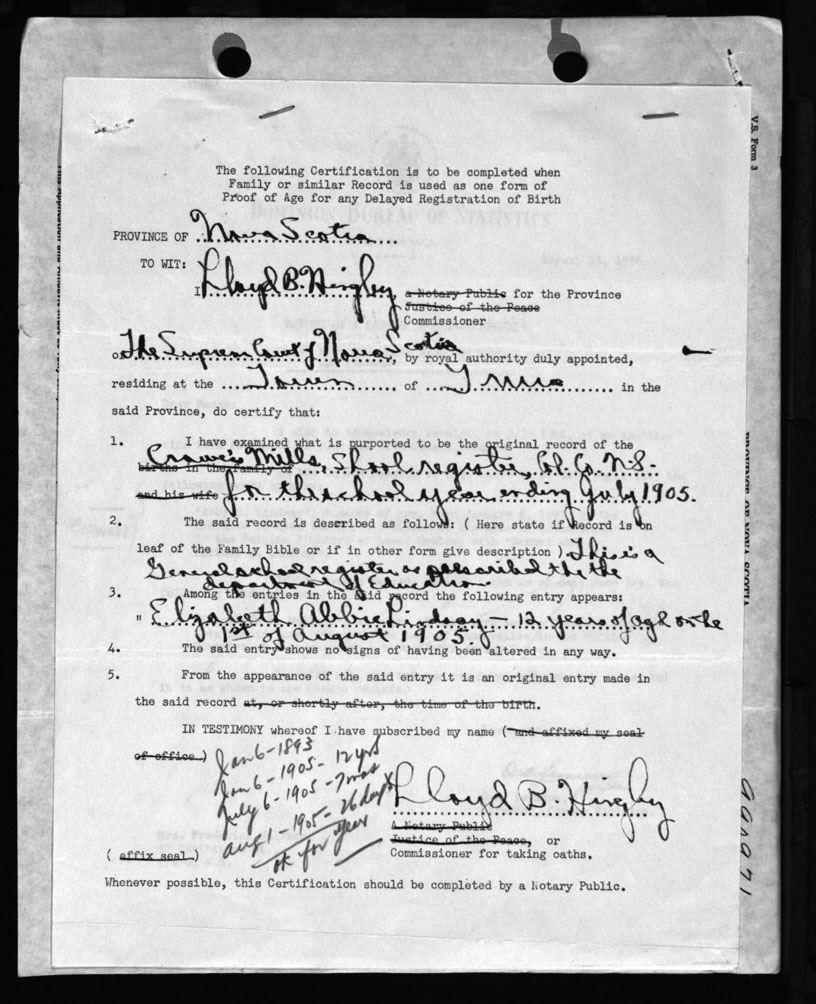 The following Certification is to be completed when
Family or similar Record is used as one form of
Proof of Age for any Delayed Registration of Birth
PROVINCE OF Nova Scotia
TO WIT:
I Lloyd B. Hingley a Notary Public for the Province
Justice of the Peace
Commissioner
of The Supreme Court of Nova Scotia, by royal authority duly appointed,
residing at the Town of Truro in the
said Province, do certify that:
1. I have examined what is purported to be the original record of the
Crowe's Mills School register, Col. Co. N.S.
births in the family of
and his wife for the school year ending July 1905.
2. The said record is described as follows: ( Here state if Record is on
leaf of the Family Bible or if in other form give description ) This is a
General school register as prescribed the the
department of Education
3. Among the entries in the said record the following entry appears:
" Elizabeth Abbie Lindsay - 12 years of age on the
1st of August 1905.
4. The said entry shows no signs of having been altered in any way.
5. From the appearance of the said entry it is an original entry made in
the said record at, or shortly after, the time of the birth.
IN TESTIMONY whereof I have subscribed my name ( and affixed my seal
of office )
Jan 6 - 1893
Jan 6 - 1905 - 12 yrs
July 6 - 1905 - 7 mos
Aug 1 - 1905 - 26 days
ok for year
Lloyd B. Hingley
A Notary Public
Justice of the Peace, or
( affix seal ) Commissioner for taking oaths.
Whenever possible, this Certification should be completed by a Notary Public.
V.S. Form 3
PROVINCE OF NOVA SCOTIA
DOMINION BUREAU OF STATISTICS